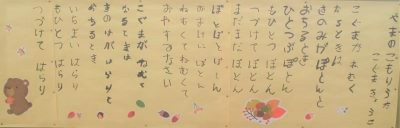 やまのこもりうた
こぐまがねむく
なるときは
きのみがぽとんと
おちるとき
ひとつぶぽとん
もひとつぽとん
つづけてぽとん
まだまだぽとん
ぽとぽとぽとん
ねむくてねむくて
おやすみなさい
こぐまがねむく
なるときは
きのはがはらりと
おちるとき
いちまいはらり
もひとつはらり
つづけてはらり